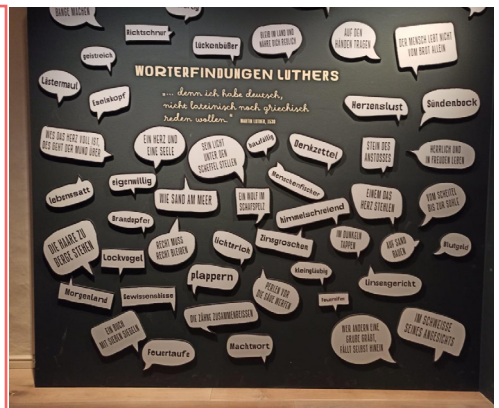 BANGE MACHEN
Richtschnur
BLEIB IM LAND UND
NÄHRE DICH REDLICH
AUF DEN
HÄNDEN TRAGEN
DER MENSCH LEBT NICHT
VOM BROT ALLEIN
geistreich
Lückenbüßer
WORTERFINDUNGEN LUTHERS
"... denn ich habe deutsch,
nicht lateinisch noch griechisch
reden wollen."
MARTIN LUTHER, 1530
Lästermaul
Eselskopf
Herzenslust
Sündenbock
WES DAS HERZ VOLL IST,
DES GEHT DER MUND ÜBER
EIN HERZ UND
EINE SEELE
SEIN LICHT
UNTER DEN
SCHEFFEL STELLEN
baufällig
Denkzettel
STEIN DES
ANSTOSSES
HERRLICH UND
IN FREUDEN LEBEN
lebenssatt
eigenwillig
WIE SAND AM MEER
EIN WOLF IM
SCHAFSPELZ
Menschenfischer
himmelschreiend
EINEM DAS
HERZ STEHLEN
VOM SCHEITEL
BIS ZUR SOHLE
Brandopfer
DIE HAARE ZU
BERGE STEHEN
Lockvogel
RECHT MUSS
RECHT BLEIBEN
lichterloh
Zinsgroschen
IM DUNKELN
TAPPEN
AUF SAND
BAUEN
Blutgeld
plappern
kleingläubig
Linsengericht
Morgenland
Gewissensbisse
PERLEN VOR
DIE SÄUE WERFEN
Feuereifer
DIE ZÄHNE ZUSAMMENBEISSEN
EIN BUCH
MIT SIEBEN SIEGELN
Feuertaufe
Machtwort
WER ANDERN EINE
GRUBE GRÄBT,
FÄLLT SELBST HINEIN
IM SCHWEISSE
SEINES ANGESICHTS